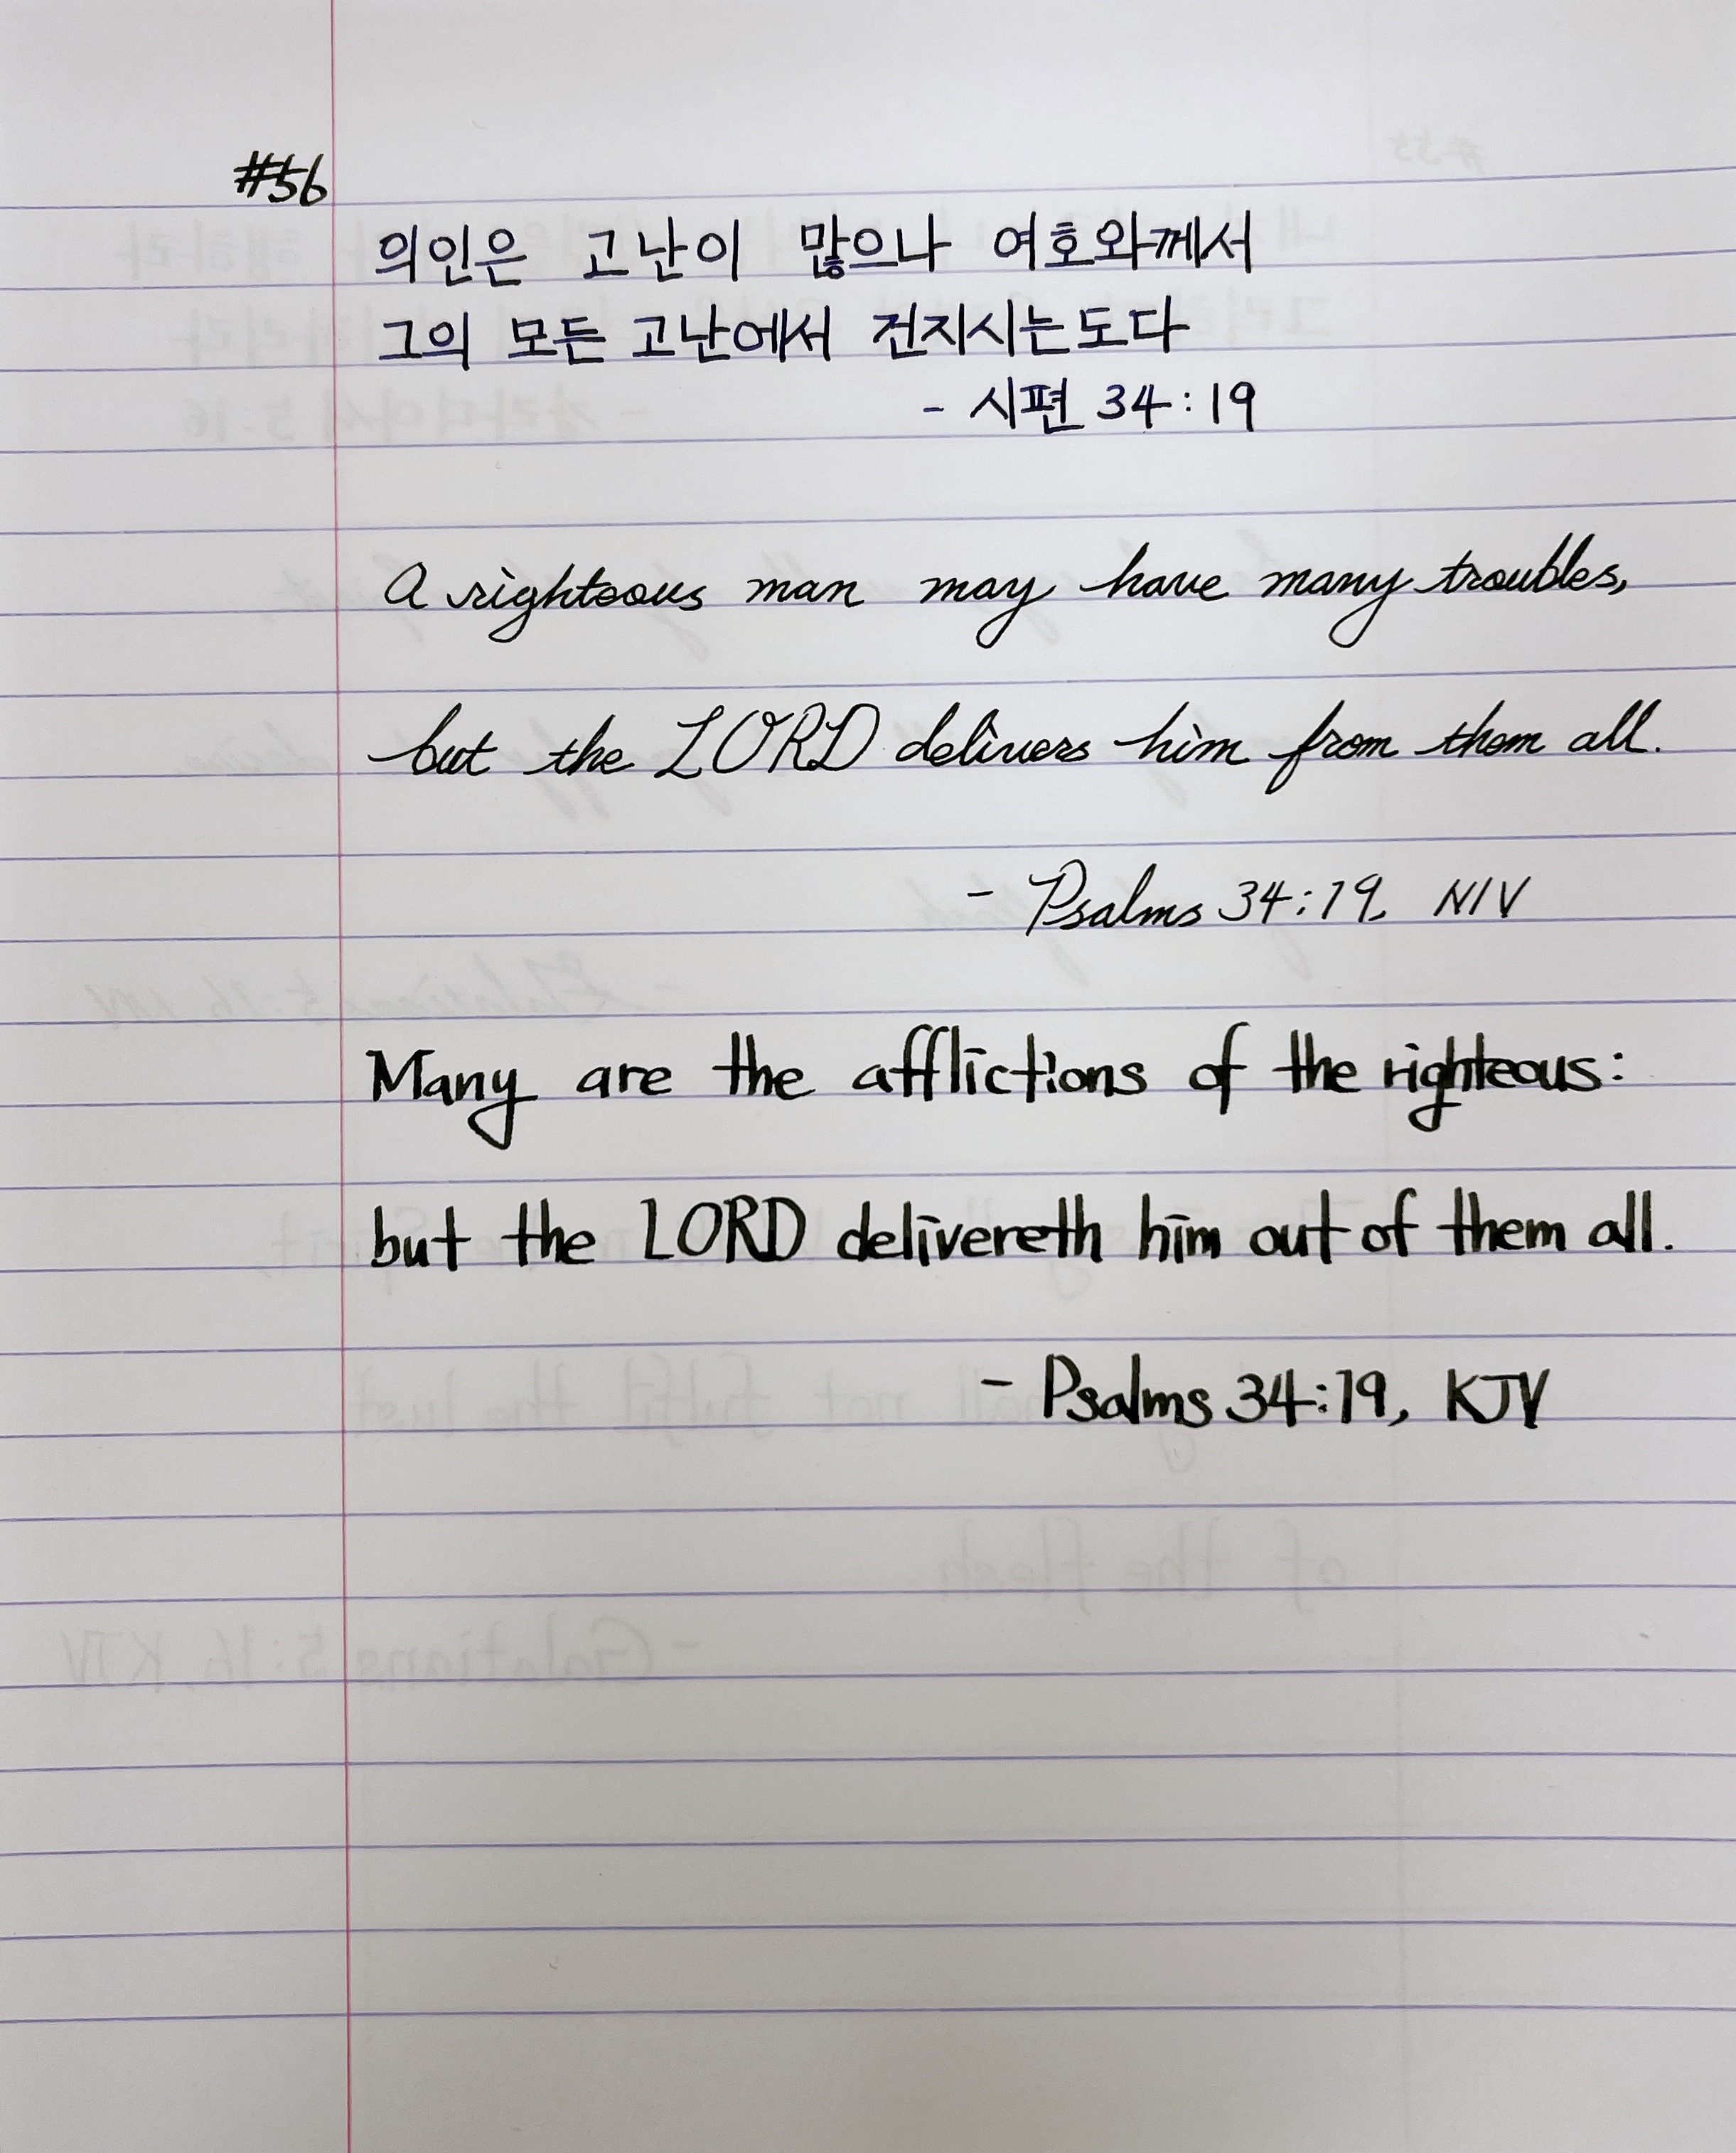 #56
의인은 고난이 많으나 여호와께서
그의 모든 고난에서 건지시는도다
- 시편 34:19
A righteous man may have many troubles,
but the LORD delivers him from them all.
- Psalms 34:19, NIV
Many are the afflictions of the righteous:
but the LORD delivereth him out of them all.
- Psalms 34:19, KJV